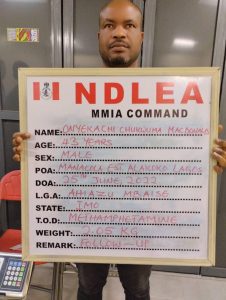 NDLEA
MMIA COMMAND
NAME: ONYEKACHI CHUKWUMA MACDONALD
AGE: 43 YEARS
SEX: MALE
POA: MANAGO EST ALAKUKO LAGOS
DOA: 25TH JUNE, 2023
L.G.A: AHIAZU MBAISE
STATE: IMO
T.O.D: METHAMPHETAMINE
WEIGHT: 2.05 KG
REMARK: FOLLOW-UP